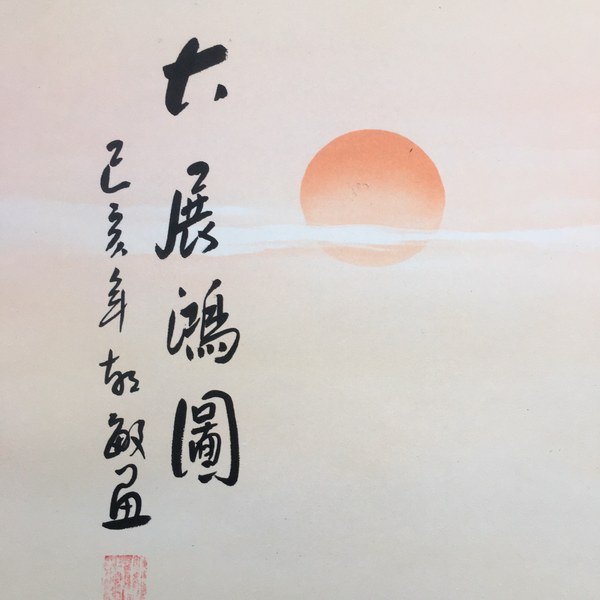 大展鴻圖
己亥年胡敏画